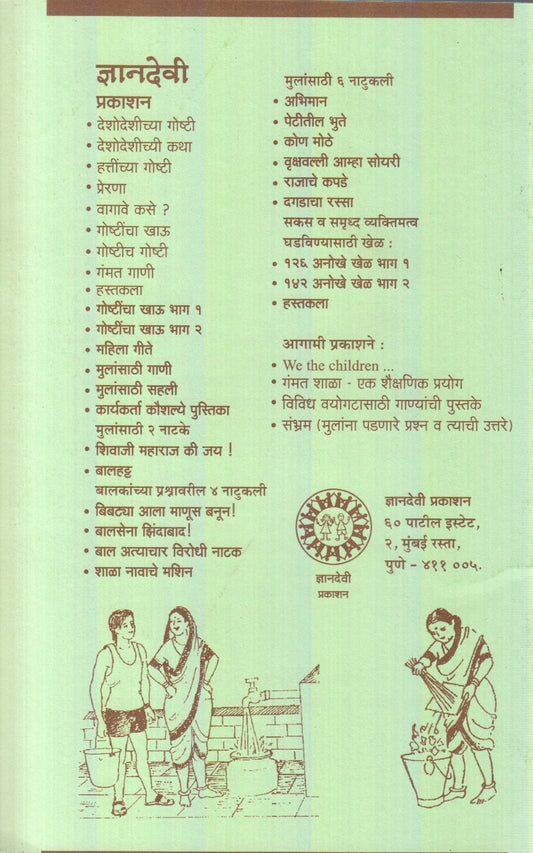 ज्ञानदेवी
प्रकाशन
• देशोदेशीच्या गोष्टी
• देशोदेशीच्यी कथा
• हत्तींच्या गोष्टी
• प्रेरणा
• वागावे कसे ?
• गोष्टींचा खाऊ
• गोष्टीच गोष्टी
• गंमत गाणी
• हस्तकला
• गोष्टींचा खाऊ भाग १
• गोष्टींचा खाऊ भाग २
• महिला गीते
• मुलांसाठी गाणी
• मुलांसाठी सहली
• कार्यकर्ता कौशल्ये पुस्तिका
मुलांसाठी २ नाटके
• शिवाजी महाराज की जय !
• बालहट्ट
बालकांच्या प्रश्नावरील ४ नाटुकली
• बिबट्या आला माणूस बनून!
• बालसेना झिंदाबाद!
• बाल अत्याचार विरोधी नाटक
• शाळा नावाचे मशिन
मुलांसाठी ६ नाटुकली
• अभिमान
• पेटीतील भुते
• कोण मोठे
• वृक्षवल्ली आम्हा सोयरी
• राजाचे कपडे
• दगडाचा रस्सा
सकस व समृध्द व्यक्तिमत्व
घडविण्यासाठी खेळ :
• १२६ अनोखे खेळ भाग १
• १४२ अनोखे खेळ भाग २
• हस्तकला
आगामी प्रकाशने :
• We the children ...
• गंमत शाळा - एक शैक्षणिक प्रयोग
• विविध वयोगटासाठी गाण्यांची पुस्तके
• संभ्रम (मुलांना पडणारे प्रश्न व त्याची उत्तरे)
ज्ञानदेवी
प्रकाशन
ज्ञानदेवी प्रकाशन
६० पाटील इस्टेट,
२, मुंबई रस्ता,
पुणे - ४११ ००५.